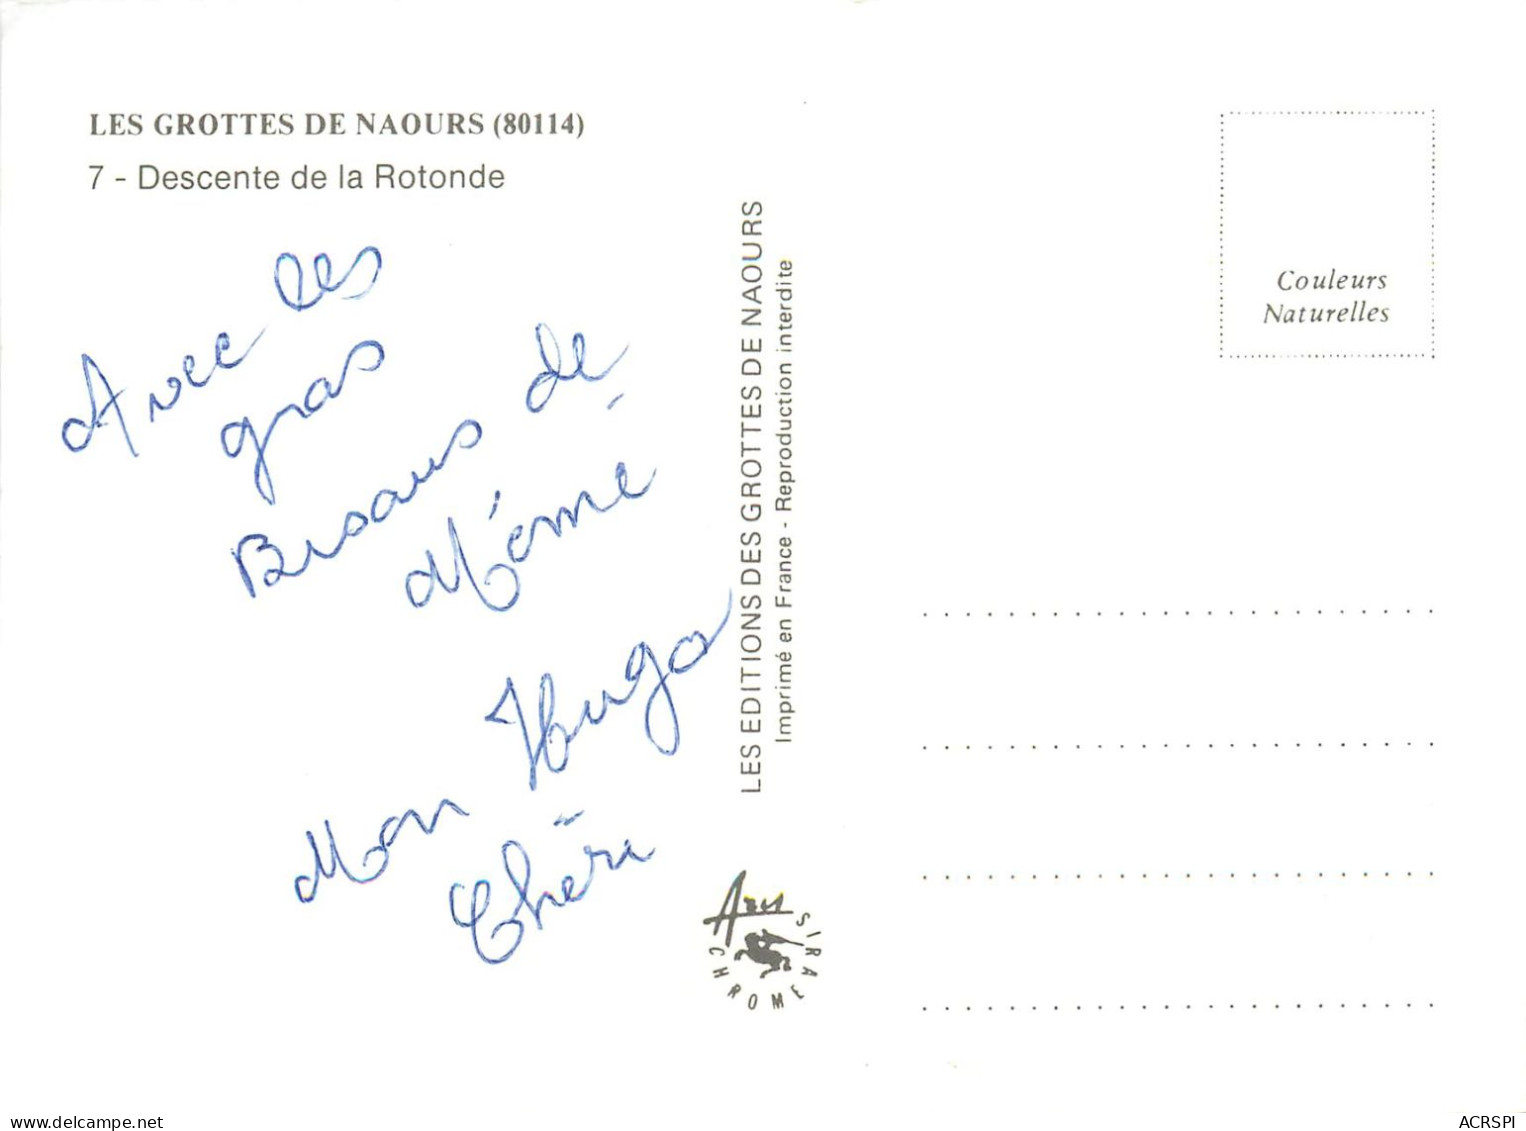 LES GROTTES DE NAOURS (80114)
7 - Descente de la Rotonde
Avec les
gros
Bisous de
Mémé
Mon Hugo
Chéri
LES EDITIONS DES GROTTES DE NAOURS
Imprimé en France - Reproduction interdite
Couleurs
Naturelles
SIRA
CHROME
delcampe.net
ACRSPI